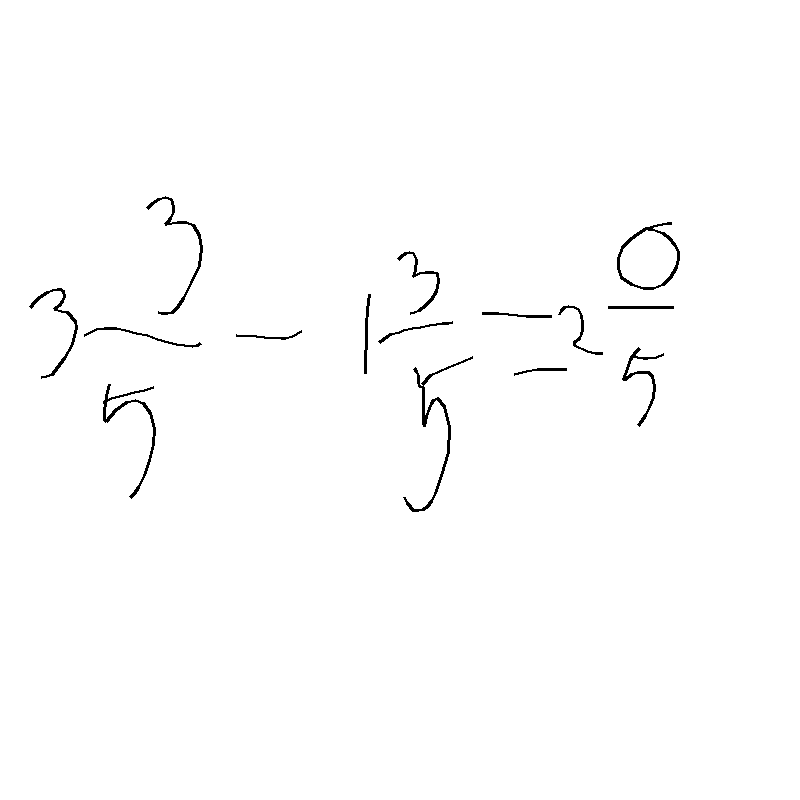 3 3/5 - 1 3/5 = 2 0/5